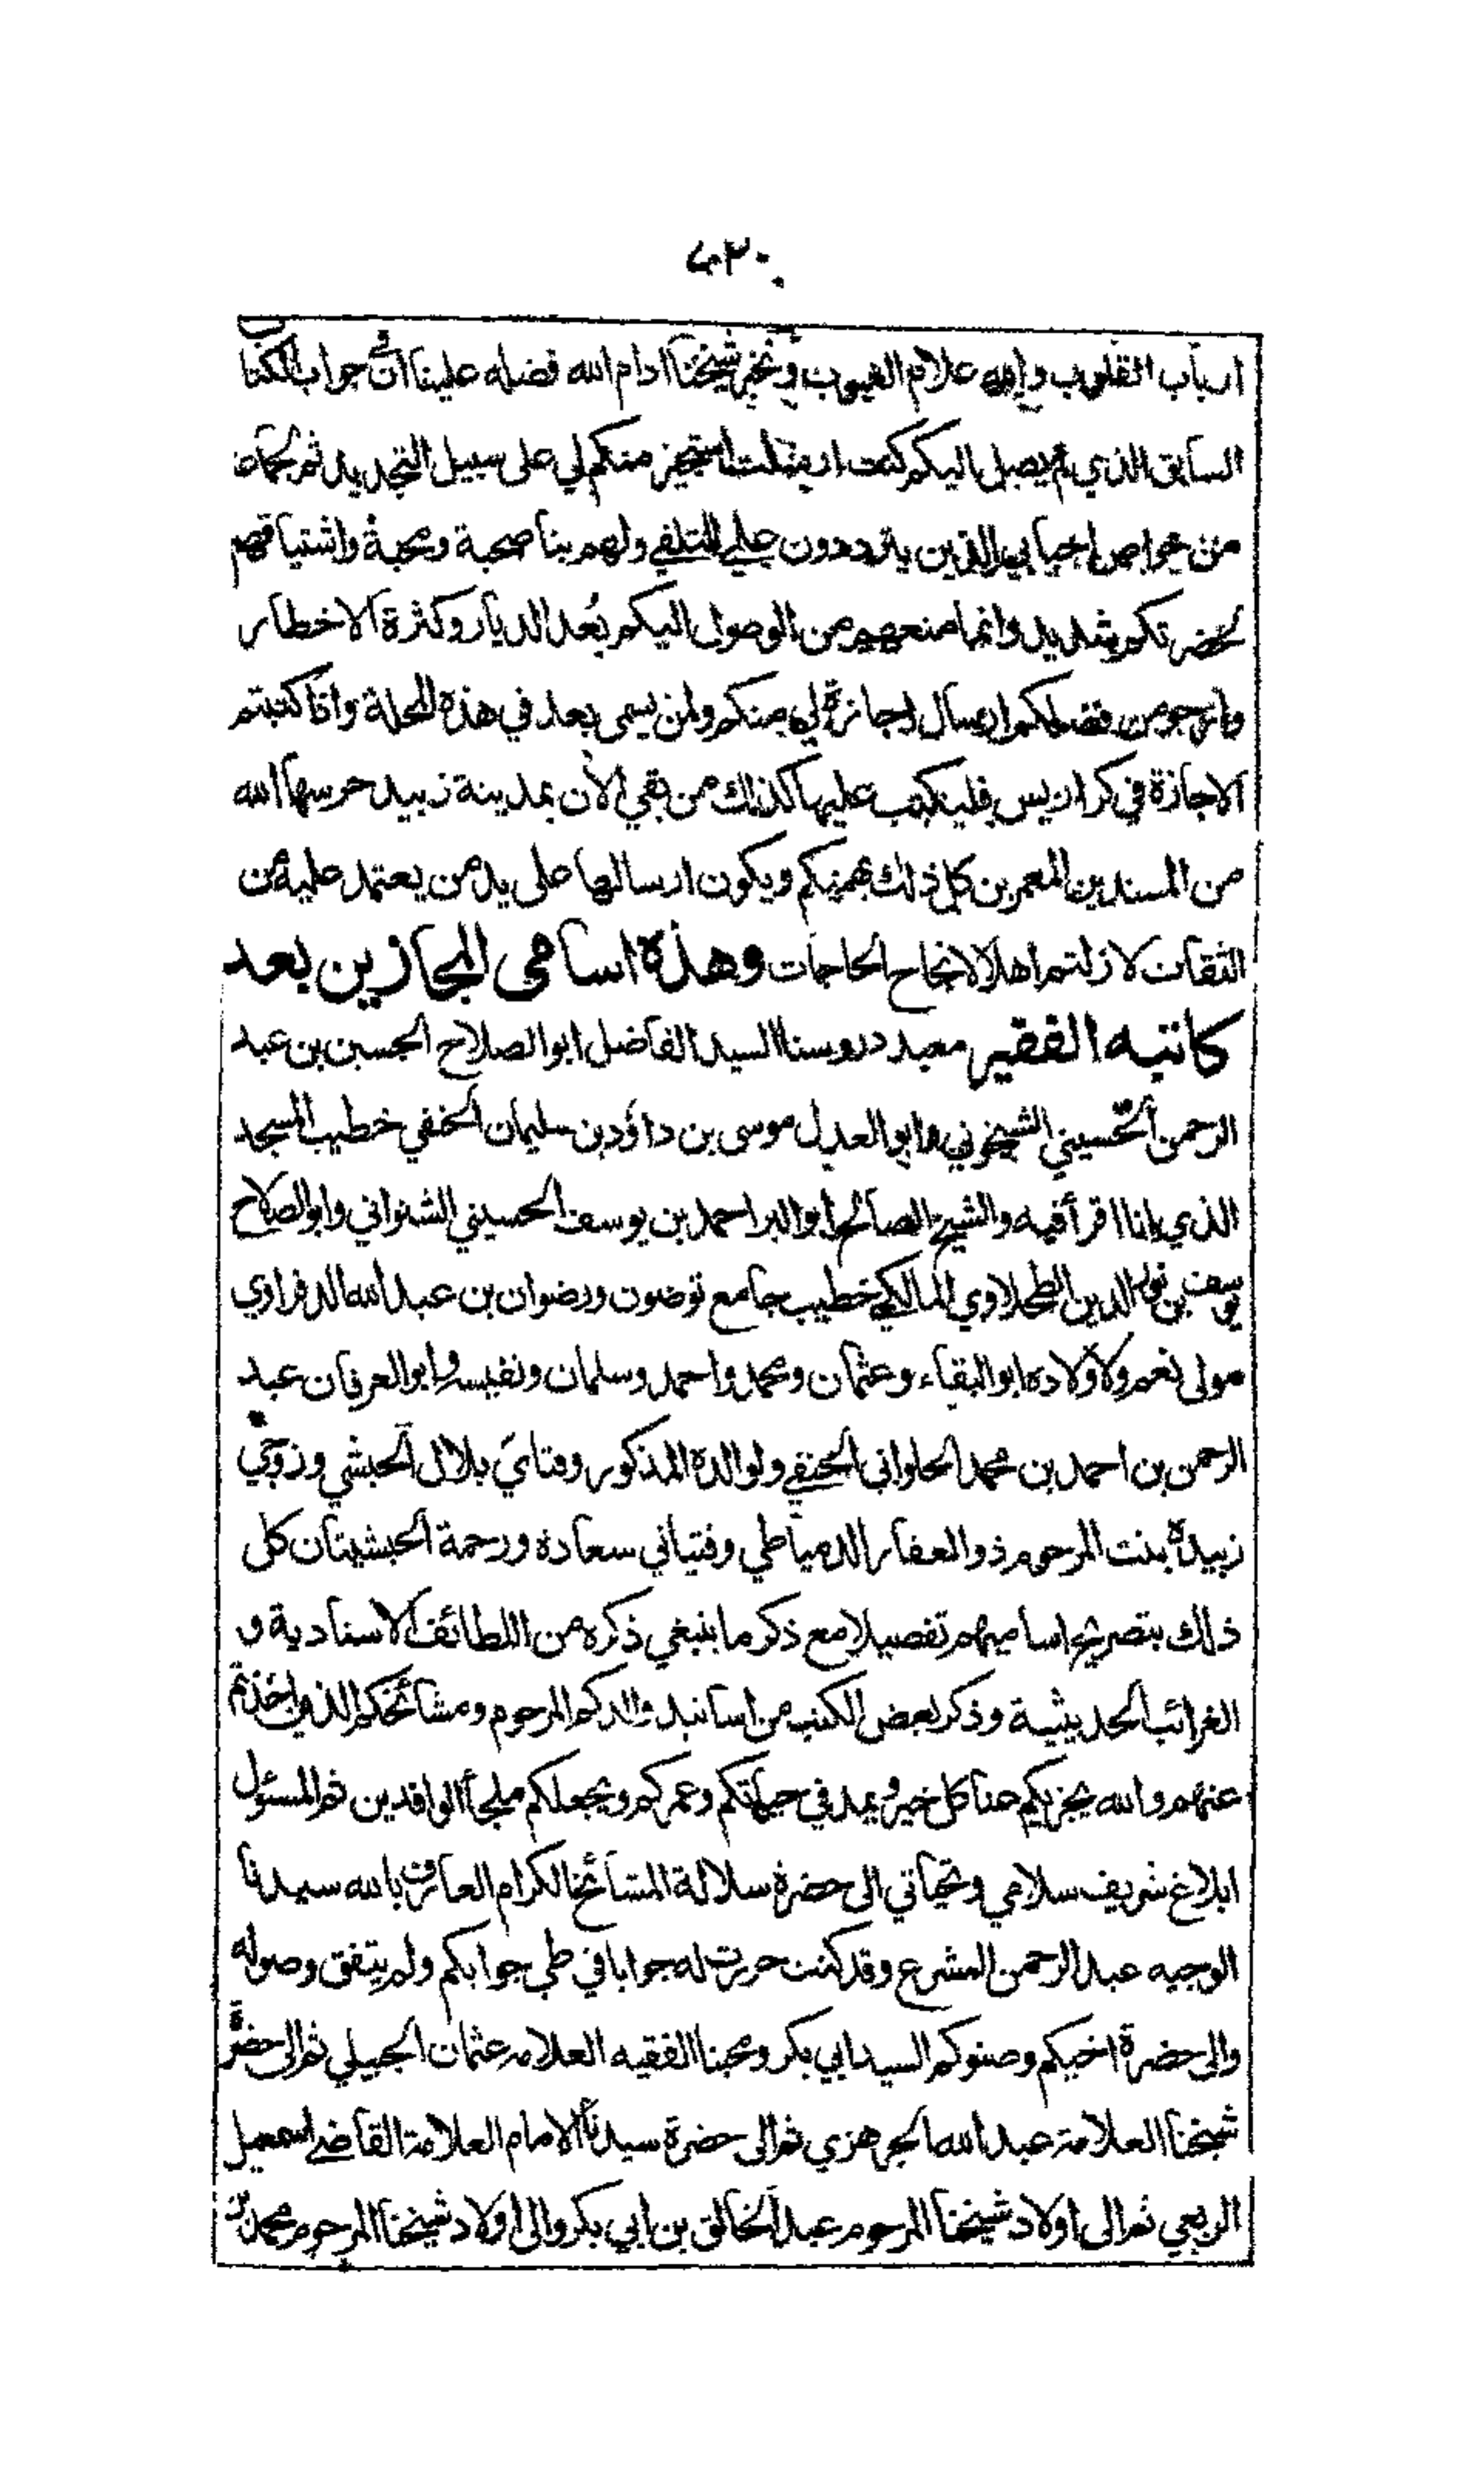 ٤٢٠
ارباب القلوب والله علام الغيوب ونخبر شيخنا ادام الله فضله علينا انّ جواب الكتاب
السابق الذي لم يصل اليكم كنت ارسلت استجيز منكم لي على سبيل التجديد ثم لجماعة
من خواص احبابي الذين يترددون علي للتلقي ولهم بنا صحبة ومحبة واشتياقهم
لحضرتكم شديد وانما منعهم من الوصول اليكم بُعد الديار وكثرة الاخطار
وارجو من فضلكم ارسال اجازة لي منكم ولمن يسمى بعد في هذه المجلة واذا كتبتم
الاجازة في كراريس فليكتب عليها كذلك من بقي الأن بمدينة زبيد حرسها الله
من المسندين المعمرين كل ذلك بهمتكم ويكون ارسالها على يد من يعتمد عليه من
الثقات لا زلتم اهلا لانجاح الحاجات وهذه اسامى المجازين بعد
كاتبه الفقير معيد دروسنا السيد الفاضل ابو الصلاح الحسين بن عبد
الرحمن الحسيني الشيخوني وابو العدل موسى بن داؤد بن سليمان الحنفي خطيب المسجد
الذي انا اقرأ فيه والشيخ الصالح ابو البر احمد بن يوسف الحسيني الشنواني وابو الصلاح
يوسف بن نور الدين الطحلاوي المالكي خطيب جامع توضون ورضوان بن عبد الله الدفراوي
مولى نعم ولاولاده ابو البقاء وعثمان ومحمد واحمد وسلمان ونفيسه وابو العرفان عبد
الرحمن بن احمد بن محمد الحلواني الحنفي ولوالده المذكور وفتاي بلال الحبشي وزوجتي
زبيدة بنت المرحوم ذو الفقار الدمياطي وفتياتي سعادة ورحمة الحبشيتان كل
ذلك بتصريح اساميهم تفصيلا مع ذكر ما ينبغي ذكره من اللطائف الاسنادية و
الغرائب الحديثية وذكر بعض الكتب من اسانيد والدكم المرحوم ومشائخكم الذين اخذتم
عنهم والله يجزيكم عنا كل خير ويمد في حياتكم وعمركم ويجعلكم ملجأ الوافدين ثم المسئول
ابلاغ شريف سلامي وتحياتي الى حضرة سلالة المشائخ الكرام العارف بالله سيدنا
الوجيه عبد الرحمن المشرع وقد كنت حررت له جوابا في طي جوابكم ولم يتفق وصوله
والى حضرة اخيكم وصنوكم السيد ابي بكر ومحبنا الفقيه العلامه عثمان الجبيلي ثم الى حضرة
شيخنا العلامة عبد الله الجرهزي ثم الى حضرة سيدنا الامام العلامة القاضي اسمعيل
الربعي ثم الى اولاد شيخنا المرحوم عبد الخالق بن ابي بكر والى اولاد شيخنا المرحوم محمد بن